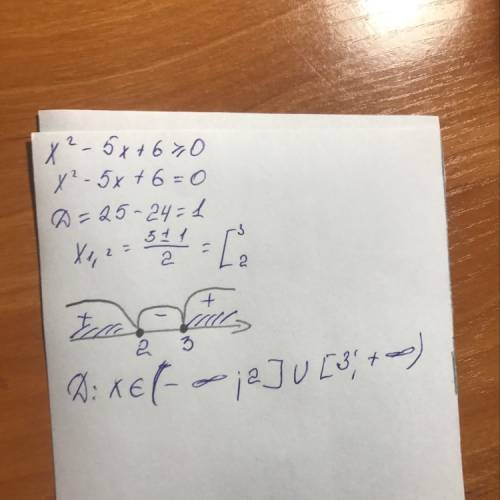 x² - 5x + 6 ≥ 0
x² - 5x + 6 = 0
Д = 25 - 24 = 1
x₁,₂ = (5 ± 1)/2 = [3 2
+ - +
2 3
Д: x ∈ (-∞; 2] ∪ [3; +∞)